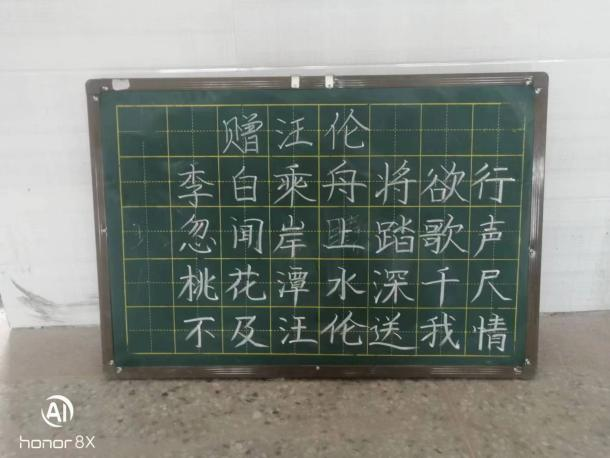 赠汪伦
李白乘舟将欲行
忽闻岸上踏歌声
桃花潭水深千尺
不及汪伦送我情
AI
honor 8X